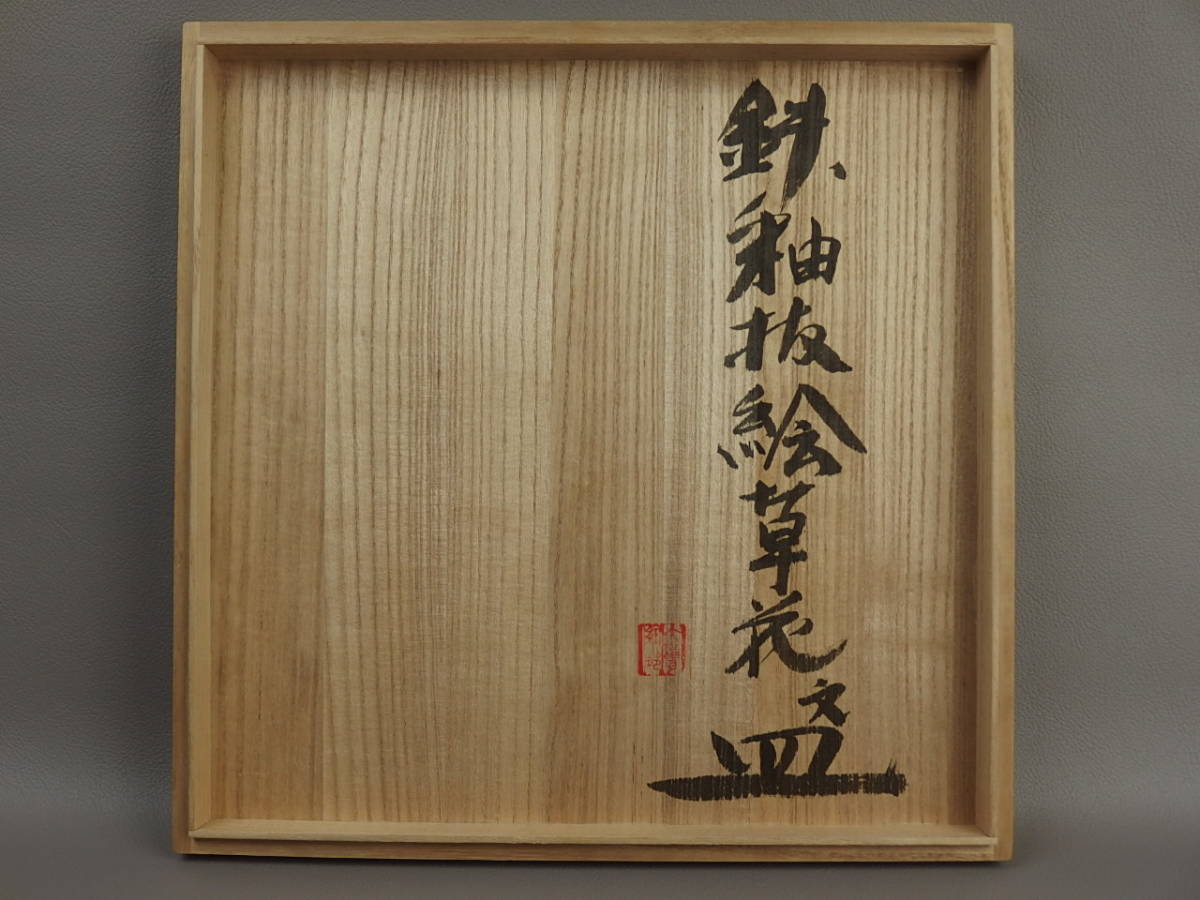 鉄釉抜絵草花文皿